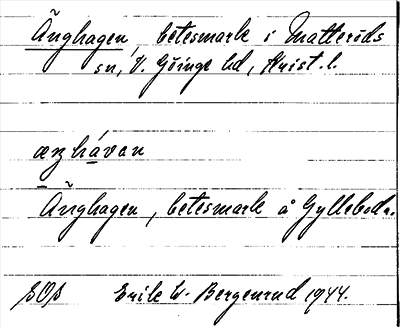 Änghagen, betesmark i Matteröds
sn, V. Göinge hd, Krist. l.
æŋhávan
Änghagen, betesmark å Gyllebodа.
SOS Erik W. Bergenrud 1944.